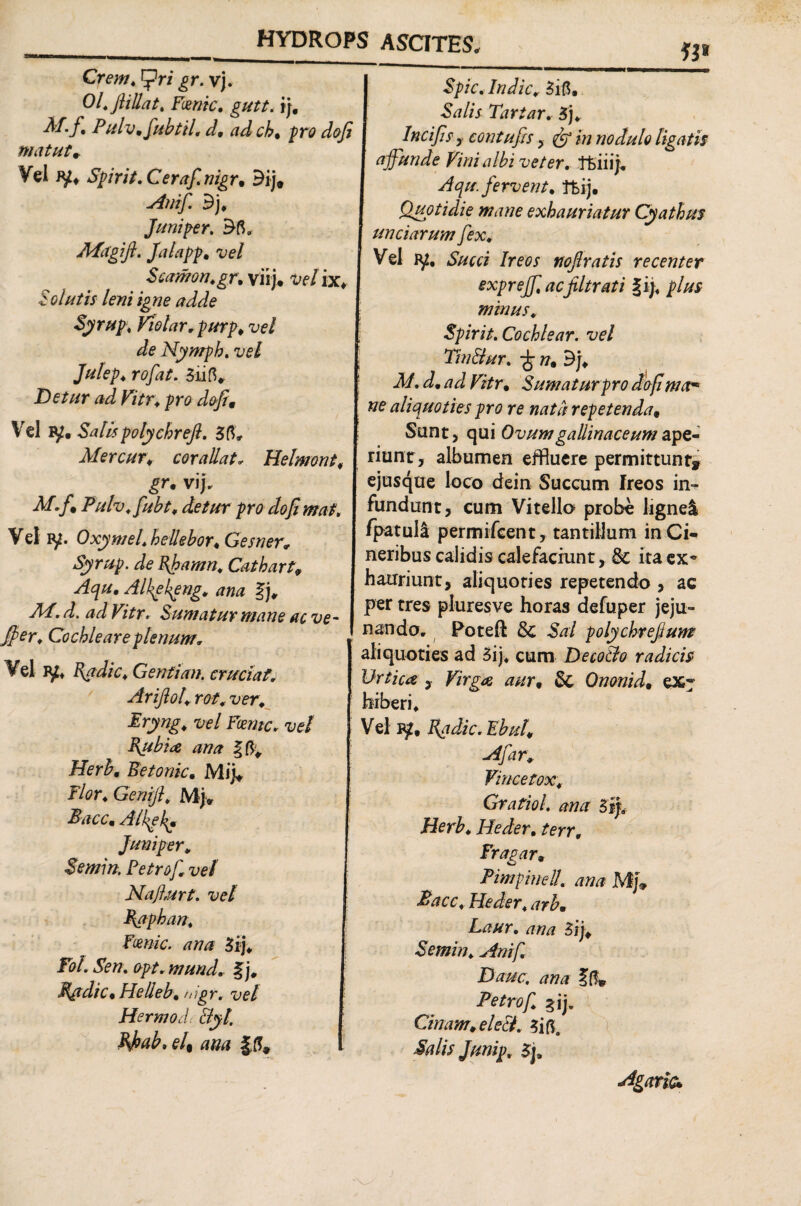 HYDROPS ASCITES.
531
Crem. Ꝑri gr. vj.
Ol. ſtillat. Fœnic. gutt. ij.
M. f. Pulv. ſubtil. d. ad ch. pro doſi
matut.
Vel ℞. Spirit. Ceraſ. nigr. ℈ij.
Aniſ. ℈j.
Juniper. ℈ß.
Magiſt. Jalapp. vel
Scam̄on. gr. viij. vel ix.
Solutis leni igne adde
Syrup. Violar. purp. vel
de Nymph. vel
Julep. roſat. ʒiiß.
Detur ad Vitr. pro doſi.
Vel ℞. Salis polychreſt. ʒß.
Mercur. corallat. Helmont.
gr. vij.
M. f. Pulv. ſubt. detur pro doſi mat.
Vel ℞. Oxymel. hellebor. Gesner.
Syrup. de Rhamn. Cathart.
Aqu. Alkekeng. ana ℥j.
M. d. ad Vitr. Sumatur mane ac ve-
ſper. Cochleare plenum.
Vel ℞. Radic. Gentian. cruciat.
Ariſtol. rot. ver.
Eryng. vel Fœnic. vel
Rubiæ ana ℥ß.
Herb. Betonic. Mij.
Flor. Geniſt. Mj.
Bacc. Alkek.
Juniper.
Semin. Petroſ. vel
Naſturt. vel
Raphan.
Fœnic. ana ʒij.
Fol. Sen. opt. mund. ℥j.
Radic. Helleb. nigr. vel
Hermod. ctyl.
Rhab. el. ana ℥ß.
Spic. Indic. ʒiß.
Salis Tartar. ʒj.
Inciſis, contuſis, & in nodulo ligatis
affunde Vini albi veter. ℔iiij.
Aqu. fervent. ℔ij.
Quotidie mane exhauriatur Cyathus
unciarum ſex.
Vel ℞. Succi Ireos noſtratis recenter
expreſſ. ac filtrati ℥ij. plus
minus.
Spirit. Cochlear. vel
Tinctur. 🜿 n. ℈j.
M. d. ad Vitr. Sumatur pro doſi ma-
ne aliquoties pro re natâ repetenda.
Sunt, qui Ovum gallinaceum ape-
riunt, albumen effluere permittunt,
ejusque loco dein Succum Ireos in-
fundunt, cum Vitello probè ligneâ
ſpatulâ permiſcent, tantillum in Ci-
neribus calidis calefaciunt, & ita ex-
hauriunt, aliquoties repetendo, ac
per tres pluresve horas deſuper jeju-
nando. Poteſt & Sal polychreſtum
aliquoties ad ʒij. cum Decocto radicis
Urticæ, Virgæ aur. & Ononid. ex-
hiberi.
Vel ℞. Radic. Ebul.
Aſar.
Vincetox.
Gratiol. ana ʒij.
Herb. Heder. terr.
Fragar.
Pimpinell. ana Mj.
Bacc. Heder. arb.
Laur. ana ʒij.
Semin. Aniſ.
Dauc. ana ℥ß.
Petroſ. ʒij.
Cinam. elect. ʒiß.
Salis Junip. ʒj.
Agaric.